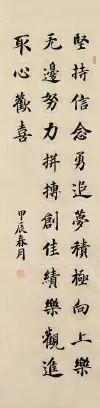 堅持信念勇追夢積極向上樂
无邊努力拼搏創佳績樂觀進
取心歡喜
甲辰春月